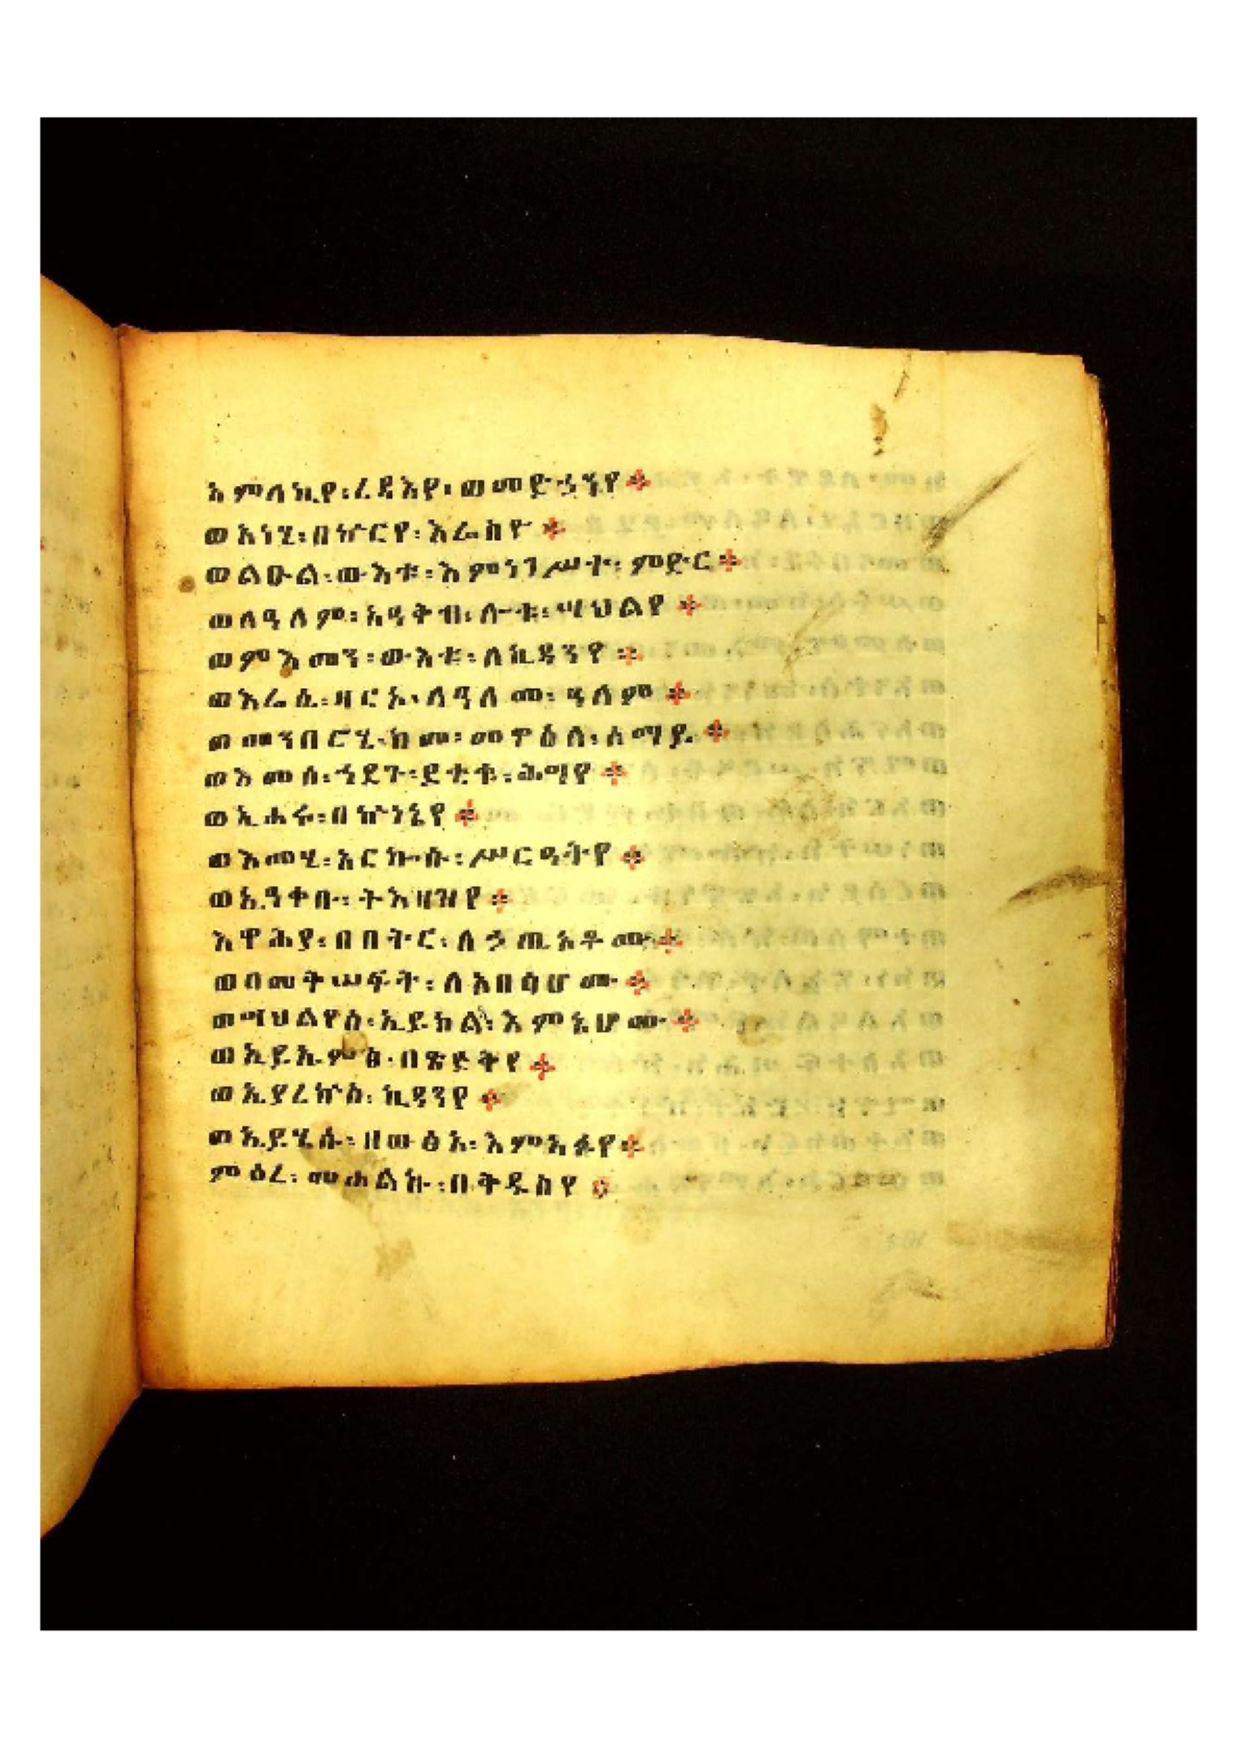 አምላኪየ፡ረዳእየ፡ወመድኃኒየ፨
ወአነሂ፡በኵርየ፡እሬስዮ፨
ወልዑል፡ውእቱ፡እምነገሥተ፡ምድር፨
ወለዓለም፡አዓቅብ፡ሎቱ፡ሣህልየ፨
ወምእመን፡ውእቱ፡ለኪዳንየ፨
ወእሬሲ፡ዛርኦ፡ለዓለመ፡ዓለም፨
ወመንበሮሂ፡ከመ፡መዋዕለ፡ሰማይ፨
ወእመሰ፡ኀደጉ፡ደቂቁ፡ሕግየ፨
ወኢሐሩ፡በኵነኔየ፨
ወእመሂ፡አርኰሱ፡ሥርዓትየ፨
ወኢዓቀቡ፡ትእዛዝየ፨
እዋሕያ፡በበትር፡ለኃጢአቶሙ፨
ወበመቅሠፍት፡ለአበሳሆሙ፨
ወሣህልየሰ፡ኢይከልእ፡እምኔሆሙ፨
ወኢይኤምፅ፡በጽድቅየ፨
ወኢያረኵስ፡ኪዳንየ፨
ወኢይሄሱ፡ዘወፅአ፡እምአፉየ፨
ምዕረ፡መሐልኩ፡በቅዱስየ፨